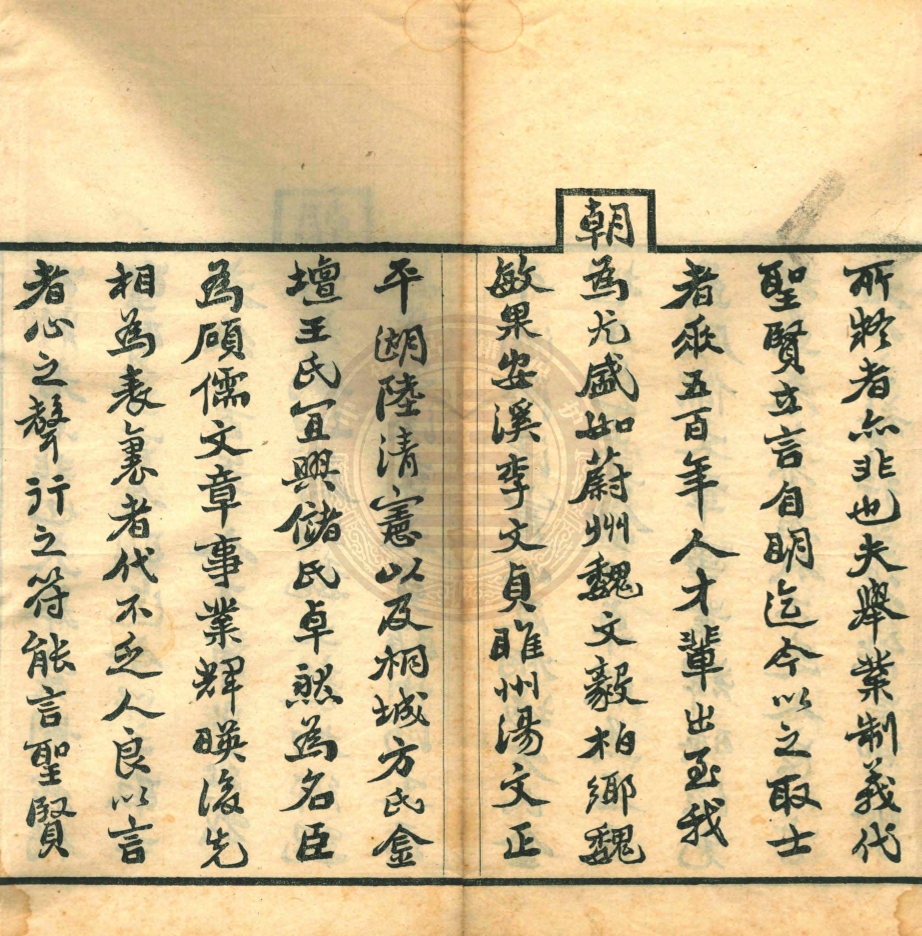 所粹者亦非也夫舉業制義代
聖賢立言自明迄今以之取士
者幾五百年人才輩出至我
朝為尤盛如蔚州魏文毅柏鄉魏
敏果安溪李文貞睢州湯文正
平湖陸清憲以及桐城方氏金
壇王氏宜興儲氏卓然為名臣
為碩儒文章事業輝暎後先
相為表裏者代不乏人良以言
者心之聲行之符能言聖賢